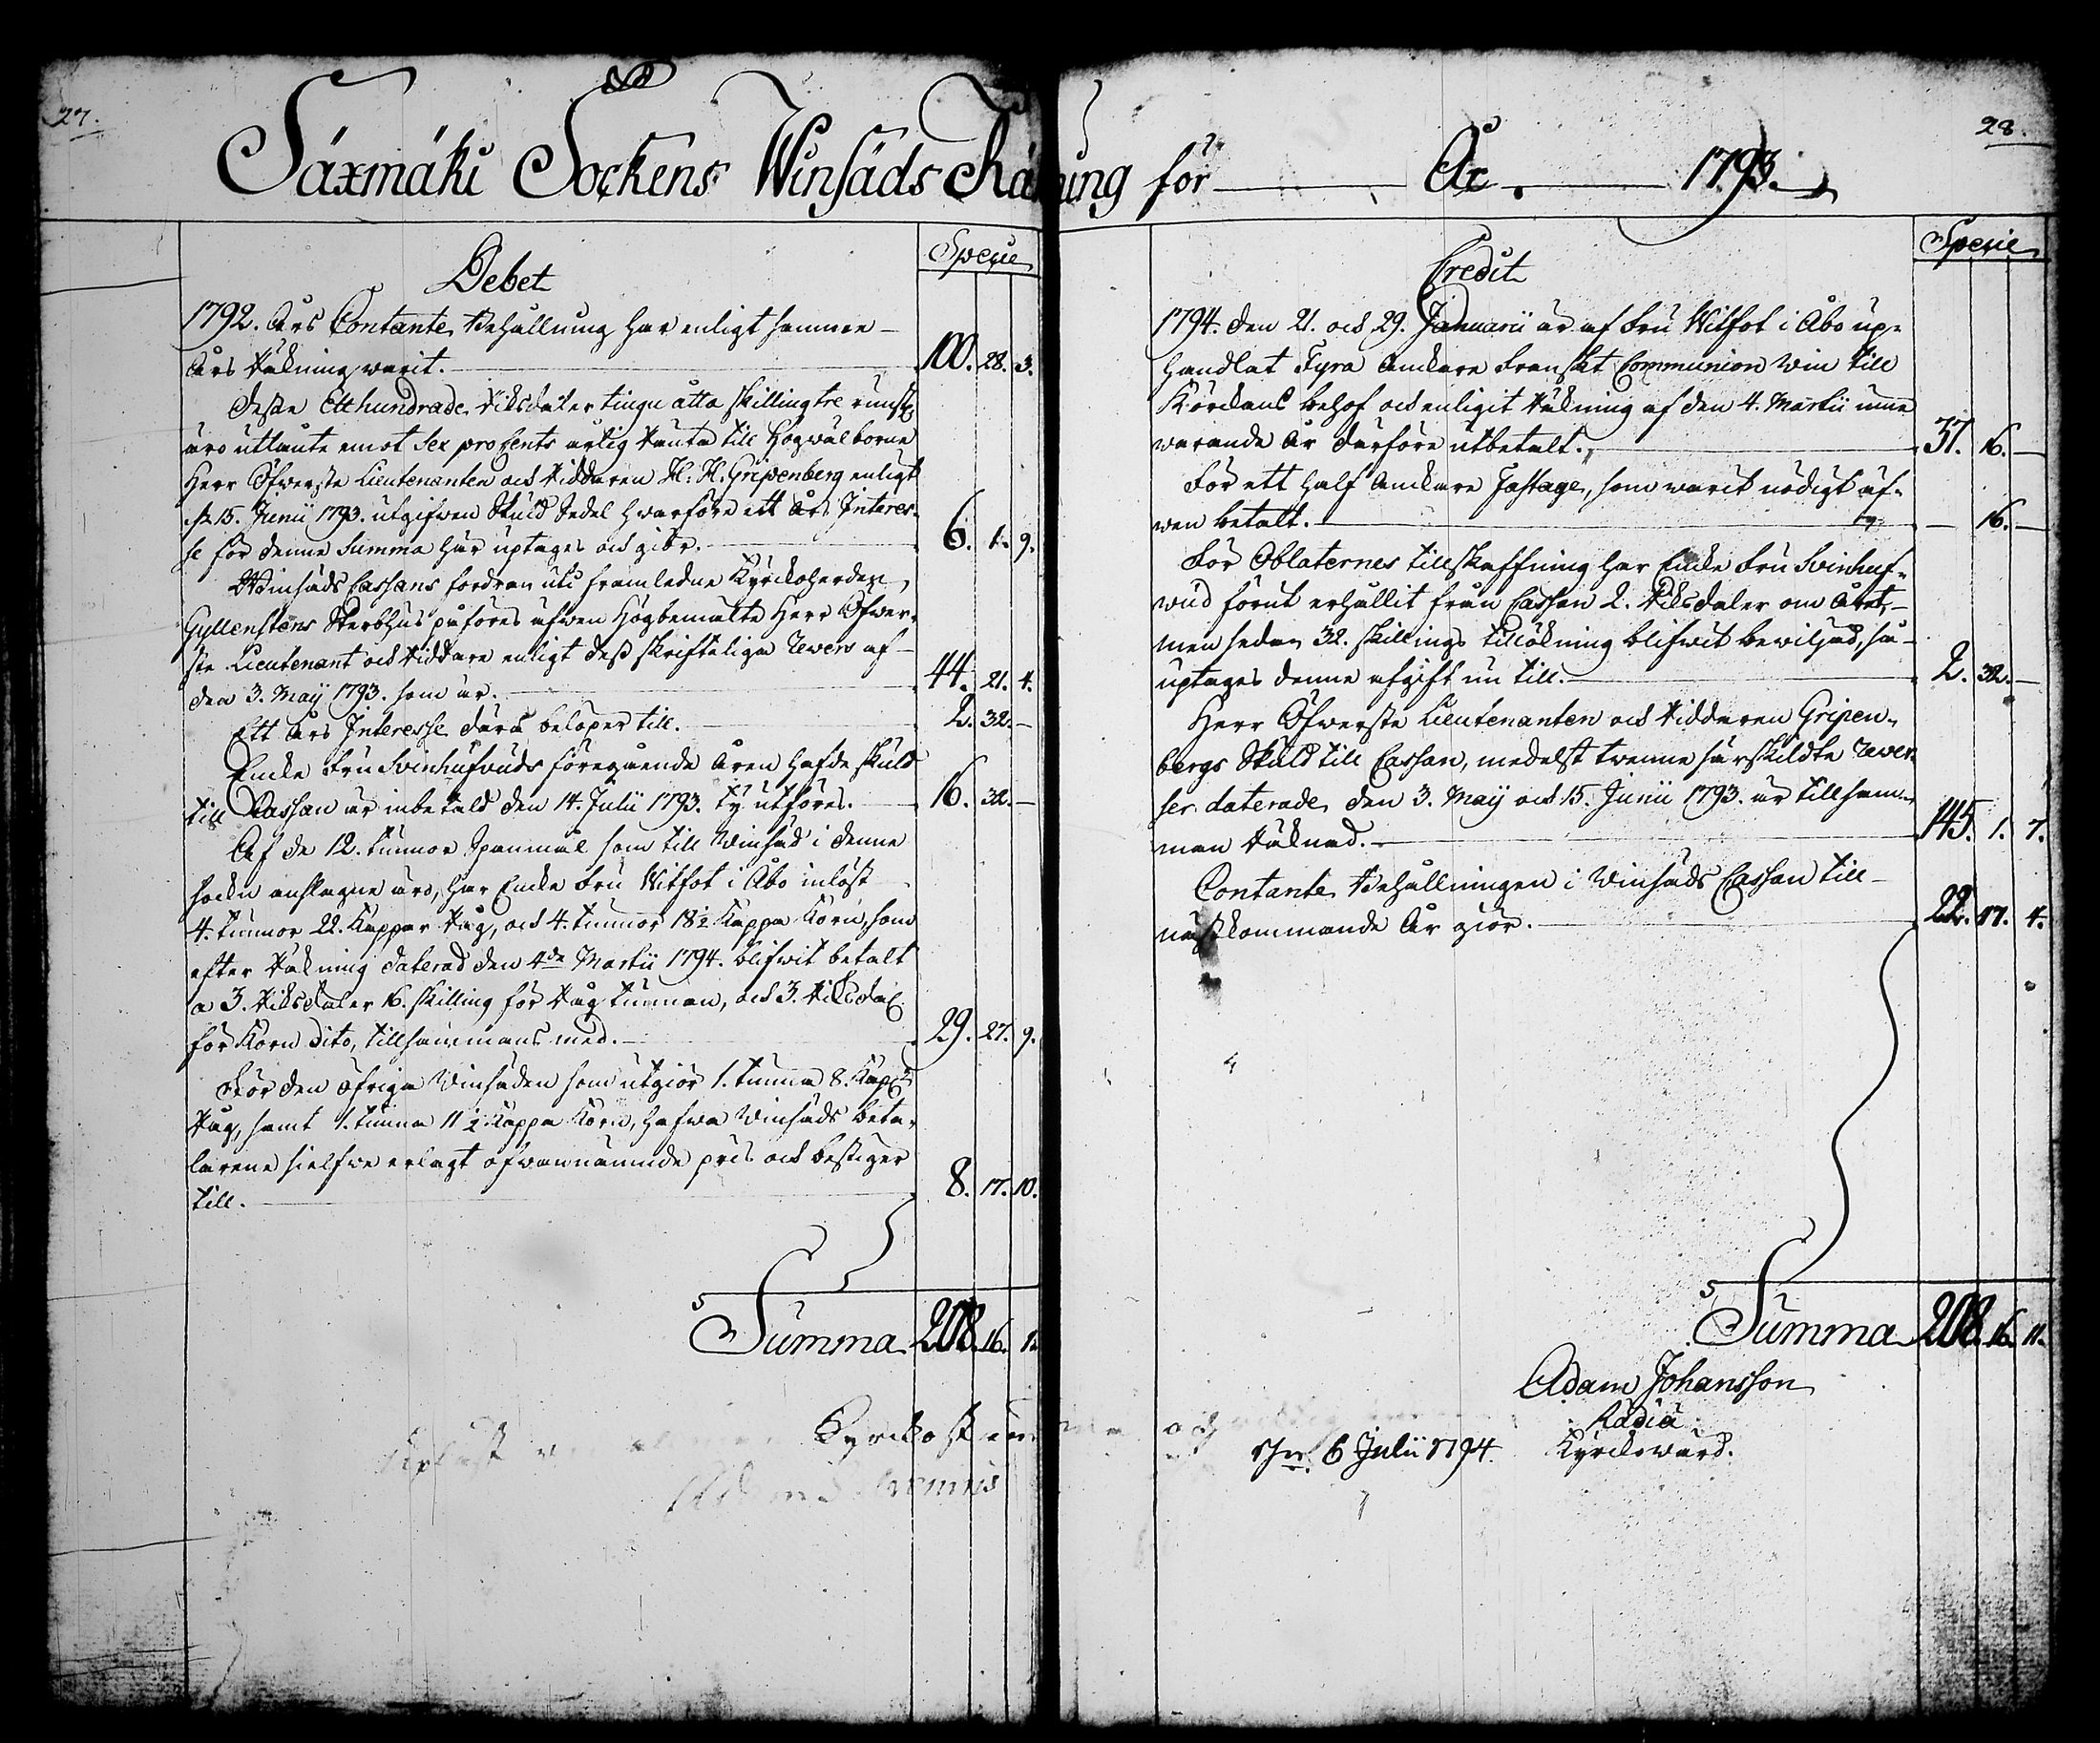 27.
Säxmäki Sockens Winsäds Räkning för År. 1793.
28.
Debet
Specie
1792. Års Contante Behållning har enligt samma
Års Räkning warit. 100. 28. 3.
Desse Etthundrade Riksdaler tiugu åtta skilling tre runst
äro utlånte emot Sex proCents årlig Ränta till Högwälborne
Herr Öfwerste Lieutenanten och Riddaren H: H. Gripenberg enligt
15. Junii 1793. utgifwen Skuld Sedel hwarföre ett Års Interes-
se för denne Summa här uptages och giör. 6. 1. 9.
Winsäds Cassans fordran uti framledne Kyrckoherden
Gyllenstens Sterbhus påföres äfwen Högbemälte Herr Öfwer-
ste Lieutenant och Riddare enligt dess skrifteliga Revers af
den 3. Maij 1793. som är. 44. 21. 4.
Ett Års Interesse därå belöper till. 2. 32. —
Encke Fru Svinhufvuds föregående Åren hafde skuld
till Cassan är inbetald den 14. Julii 1793. ty utföres. 16. 32. —
Af de 12. tunnor Spanmål som till Winsäd i denne
Sockn anslagne äro, har Encke Fru Witfot i Åbo inlöst
4. tunnor 22. Kappar Råg, och 4. tunnor 18½ Kappa Korn, som
efter Räkning daterad den 4de Martii 1794. blifwit betalt
a 3. Riksdaler 16. skilling för Råg tunnan, och 3. Riksdal.
för Korn dito, tillsammans med. 29. 27. 9.
För den öfriga Winsäden som utgiör 1. tunna 8. Kapp.
Råg, samt 1. tunna 11½ Kappa Korn, hafwa Winsäds beta-
larene sielfwe erlagt ofwannämnde pris och bestiger
till. 8. 17. 10.
Summa 208. 16. 11.
Credit
Specie
1794. den 21. och 29. Januarii är af Fru Witfot i Åbo up-
handlat Fyra Anckare Franskt Communion Win till
Kÿrckans behof och enligit Räkning af den 4. Martii inne
warande År därföre utbetalt. 37. 16. —
För ett half Anckare Fastage, som warit nödigt äf-
wen betalt. — 16. —
För Oblaternes tillskaffning har Encke Fru Svinhuf-
wud förut erhållit från Cassan 2. Riksdaler om Året,
men sedan 32. skillings tillökning blifwit bewiljad, så
uptages denne afgift nu till. 2. 32. —
Herr Öfwerste Lieutenanten och Riddaren Gripen-
bergs Skuld till Cassan, medelst twenne särskildte Rever-
ser daterade den 3. Maij och 15. Junii 1793. är tillsam-
man Räknad. 145. 1. 7.
Contante Behållningen i Winsäds Cassan till
nästkommande År giör. 22. 47. 4.
Summa 208. 16. 11.
Adam Johansson
Rådiä
Kyrckowärd.
Kyrckost
och
6 Julii 1794.